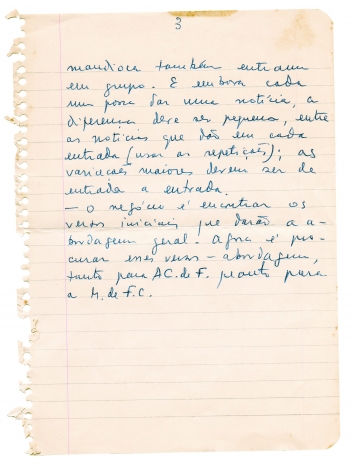 3
mandioca também entram
em grupo. E embora cada
um possa dar uma notícia, a
diferença deve ser pequena, entre
as notícias que dão em cada
entrada (usar as repetições); as
variações maiores devem ser de
entrada a entrada.
— O negócio é encontrar os
versos iniciais que darão a a-
bordagem geral. Agora é pro-
curar esses versos – abordagem,
tanto para AC. de F. quanto para
a M. de F.C.